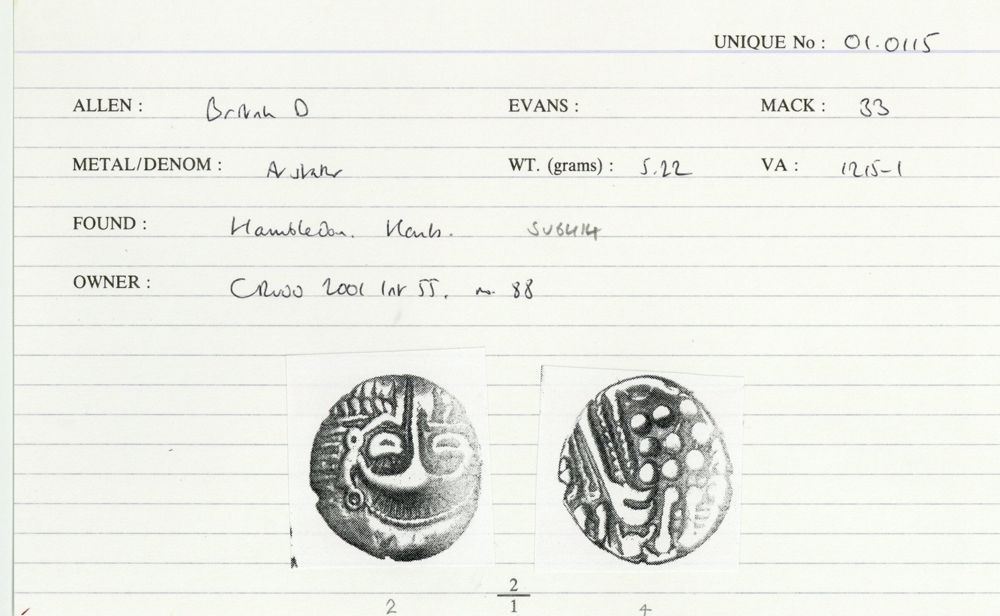 UNIQUE No : 01.0115
ALLEN : British D EVANS : MACK : 33
METAL/DENOM : Av stater WT. (grams) : 5.22 VA : 1215-1
FOUND : Hambledon. Hants. SU6414
OWNER : CR 2001 55. no. 88
2/1
2 4